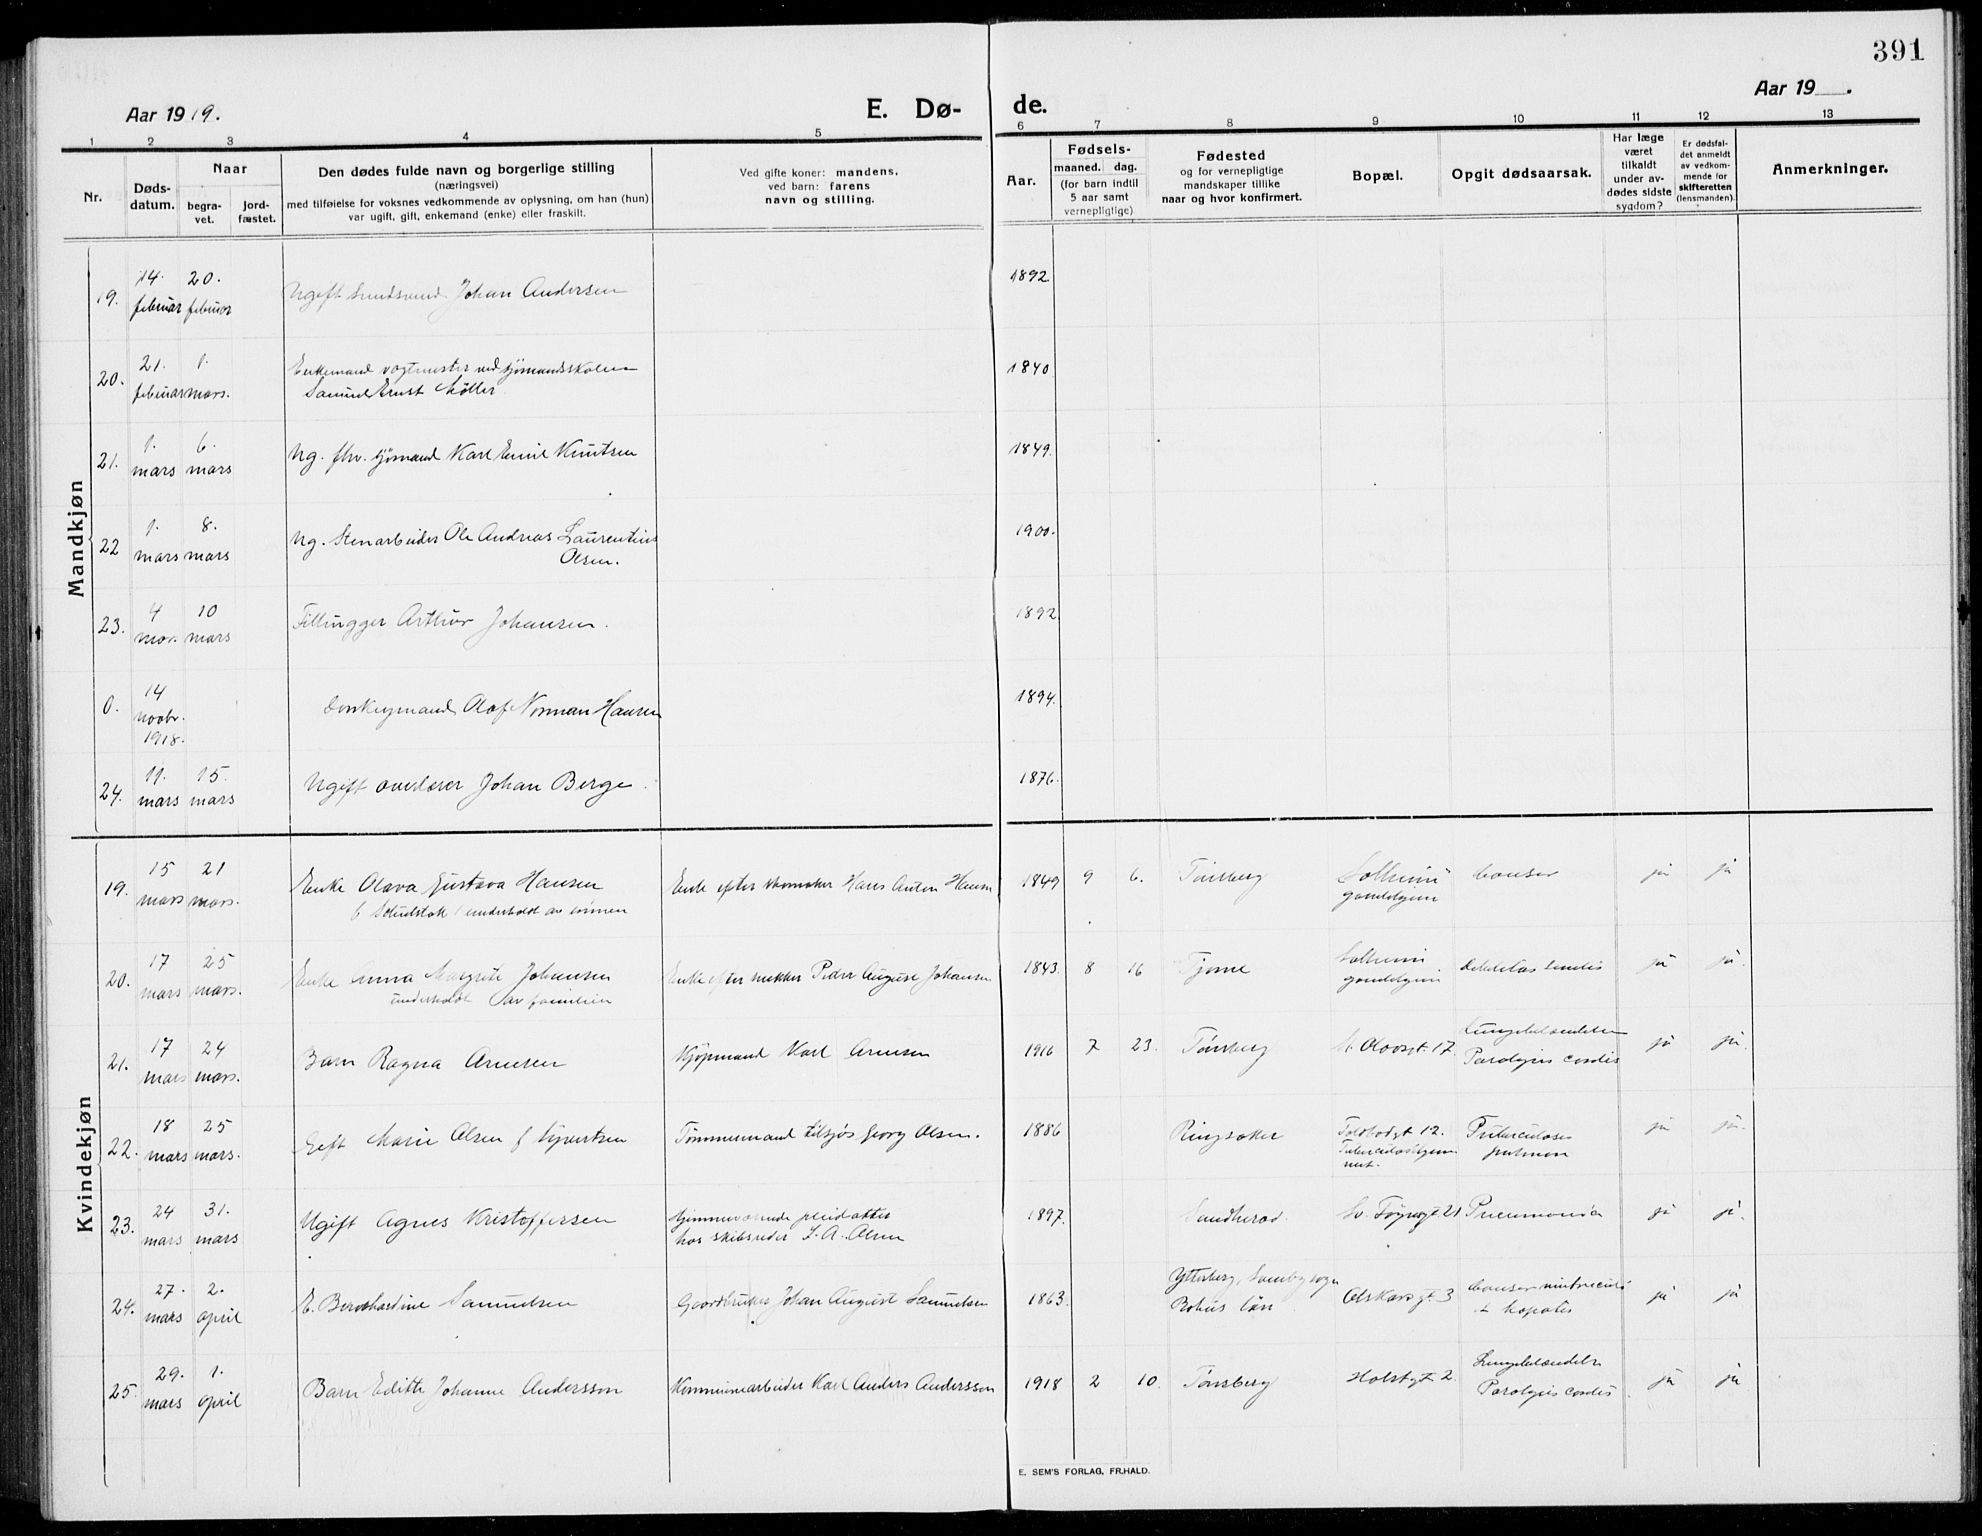 391
Aar 1919.
E. Dø-
de.
Aar 19 .
1 2 3 4 5 6 7 8 9 10 11 12 13
Nr.
Døds-
datum.
Naar
begra-
vet.
jord-
fæstet.
Den dødes fulde navn og borgerlige stilling
(næringsvei)
med tilføielse for voksnes vedkommende av oplysning, om han (hun)
var ugift, gift, enkemand (enke) eller fraskilt.
Ved gifte koner: mandens,
ved barn: farens
navn og stilling.
Aar.
Fødsels-
maaned. dag.
(for barn indtil
5 aar samt
vernepligtige)
Fødested
og for vernepligtige
mandskaper tillike
naar og hvor konfirmert.
Bopæl.
Opgit dødsaarsak.
Har læge
været
tilkaldt
under av-
dødes sidste
sygdom?
Er dødsfal-
det anmeldt
av vedkom-
mende for
skifteretten
(lensmanden).
Anmerkninger.
Mandkjøn
19. 14. februar 20. februar Ugift Johan Andersen 1892
20. 21. februar 1. mars. Enkemand vagtmester ved sjømandsskolen
Samuel Ernst Møller 1840
21. 1. mars 6. mars Ug. fhv. sjømand Karl Emil Knutsen 1849.
22 1. mars 8. mars Ug. Stenarbeider Ole Andreas Laurentius
Olsen. 1900.
23. 4 mar. 10 mars Arthur Johansen. 1892
0. 14 novbr. 1918. Donkeymand Olaf Norman Hansen 1894.
24. 11. mars 15. mars Ugift overlærer Johan Berge. 1876.
Kvindekjøn
19. 15 mars 21 mars. Enke Olava Gustava Hansen Enke efter skomaker Hans Anton Hansen 1849 9 6. Tønsberg Solheim cancer ja ja
underholdt av sønnen
20. 17 mars 25 mars. Enke Anna Margrete Johansen Enke efter Peder August Johansen 1843. 8 16 Tjøme Solheim ja ja.
underholdt av familien
21. 17 mars 24 mars. Barn Ragna Arnesen Kjøpmand Karl Arnesen 1916 7 23. Tønsberg St. Olavsgt. 17. Lungebetændelse
Paralysis cordis ja ja.
22. 18 mars 25 mars. Gift Marie Olsen f Syvertsen Tømmermand tilsjøs Georg Olsen. 1886 Ringsaker Toldbodgt 12. Tuberculosis
pulmon ja ja.
23. 24 mars 31. mars Ugift Agnes Kristoffersen Hjemmeværende pleiedatter
hos skibsreder S. A. Olsen 1897. Sandherad. Sv. Føyngt. 21 Pneumonia ja ja.
24. 27. mars 2. april E. Bernhardine Samuelsen Gaardbruker Johan August Samuelsen 1863. Ytterberg, Tanby sogn
Bohus län. 3 Cancer ventriculi
& hepatis ja ja
25. 29. mars 1. april Barn Edith Johanne Andersson Kommunearbeider Karl Anders Andersson 1918 2 10. Tønsberg Holstgt. 2. Lungebetændelse
Paralysis cordis ja ja
E. SEM'S FORLAG, FR.HALD.